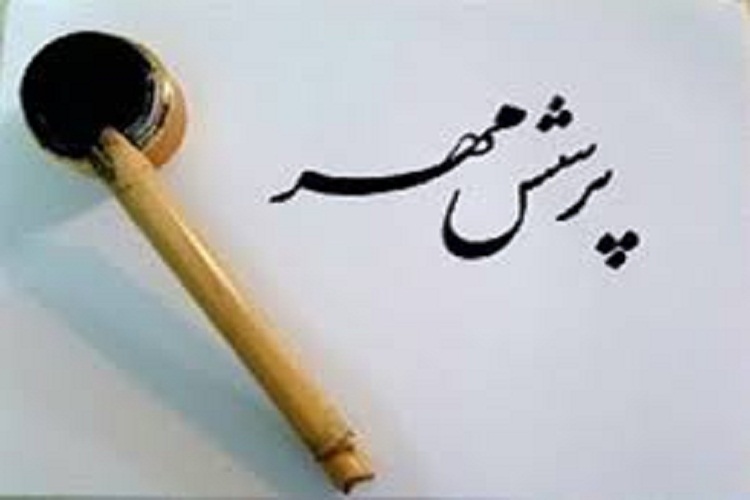 پرسش مهر